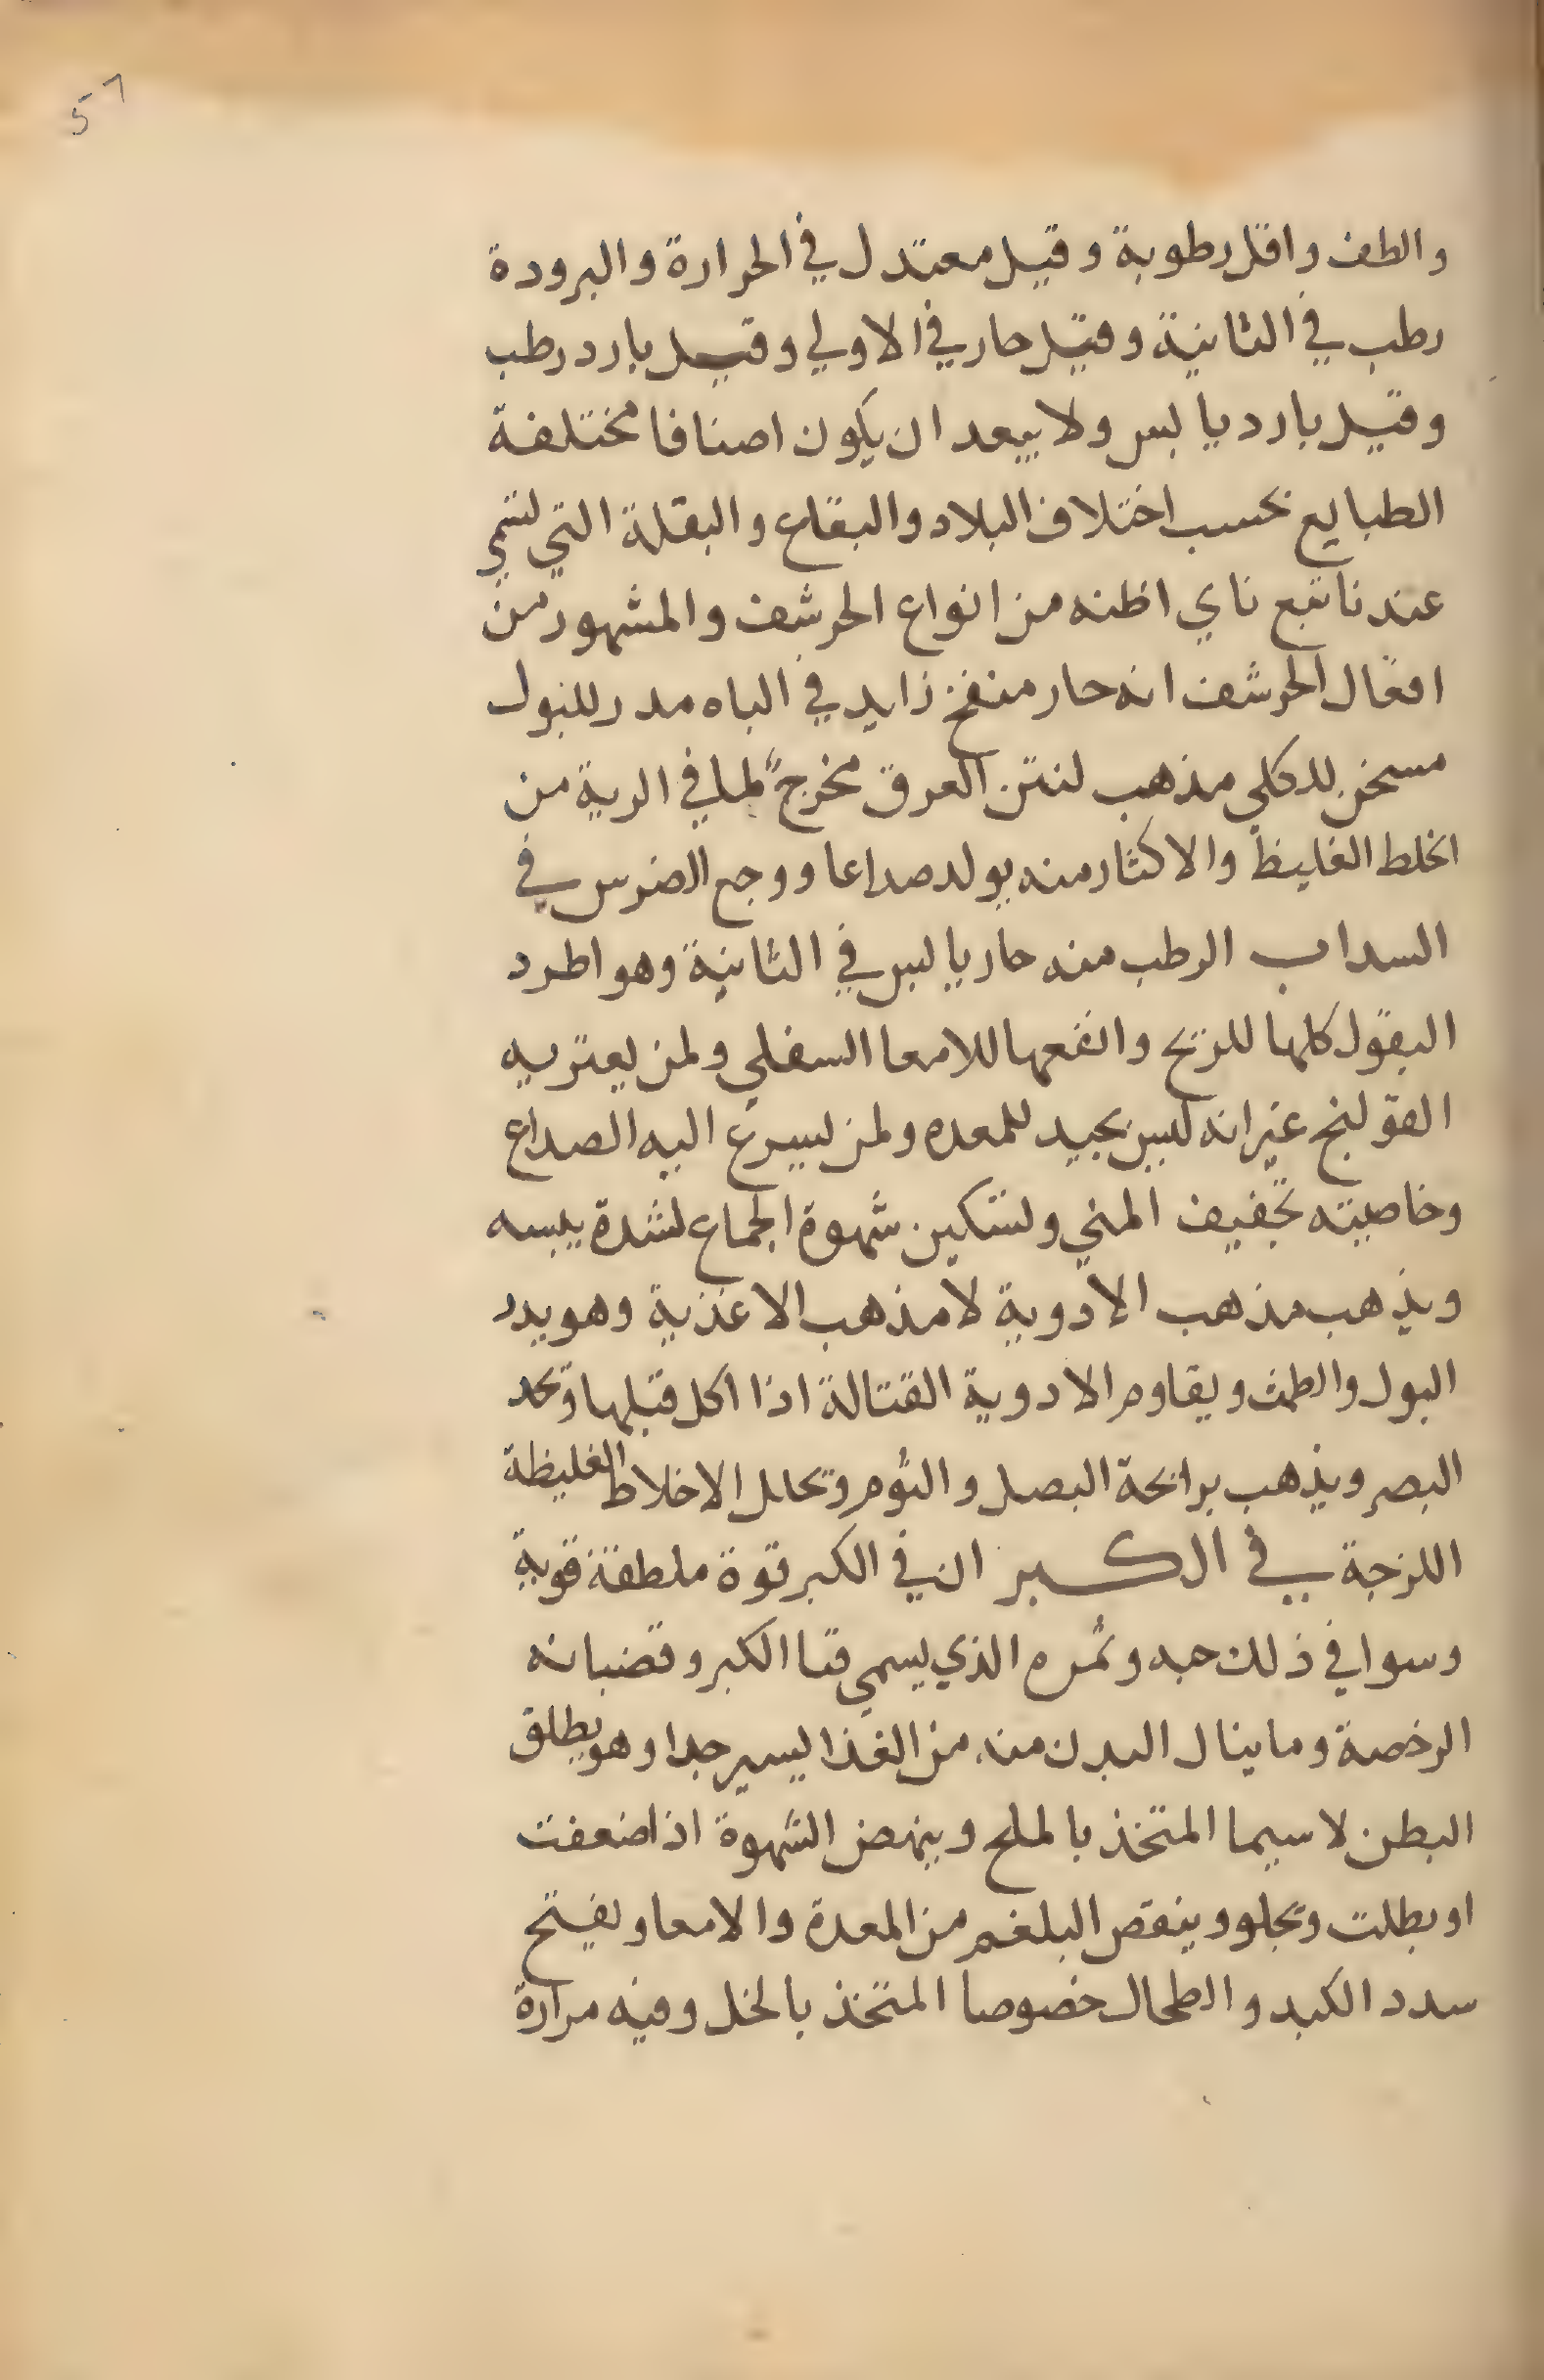 57
والطف واقل رطوبة وقيل معتدل في الحرارة والبرودة
رطب في الثانية وقيل حار في الاولي وقيل بارد رطب
وقيل بارد يابس ولا يبعد ان يكون اصنافا مختلفة
الطبايع بحسب اختلاف البلاد والبقاع والبقلة التي تسمي
عندنا تبع ناي اظنه من انواع الحرشف والمشهور من
افعال الحرشف انه حار منفخ زايد في الباه مدر للبول
مسخن للكلي مذهب لنتن العرق مخرجً لما في الرية من
الخلط الغليظ والاكثار منه يولد صداعا ووجع الضرس في
السداب الرطب منه حار يابس في الثانية وهو اطرد
البقول كلها للريح وانفعها للامعا السفلي ولمن يعتريه
القولنج غير انه ليس بجيد للمعده ولمن يسرع اليه الصداع
وخاصيته تجفيف المني وتسكين شهوة الجماع لشدة يبسه
ويذهب مذهب الادوية لا مذهب الاغذية وهو يدر
البول والطمث ويقاوم الادوية القتالة اذا اكل قبلها ويحد
البصر ويذهب برائحة البصل والثوم ويحلل الاخلاط الغليظة
اللزجة في الكبر ان في الكبر قوة ملطفة قوية
وسوا في ذلك حبه وثمره الذي يسمي قثا الكبر وقضبانه
الرخصة وما ينال البدن منه من الغذا يسير جدا وهو يطلق
البطن لا سيما المتخذ بالملح وينهض الشهوة اذا ضعفت
او بطلت ويجلو وينقص البلغم من المعدة والامعا ويفتح
سدد الكبد والطحال خصوصا المتخذ بالخل وفيه مرارة